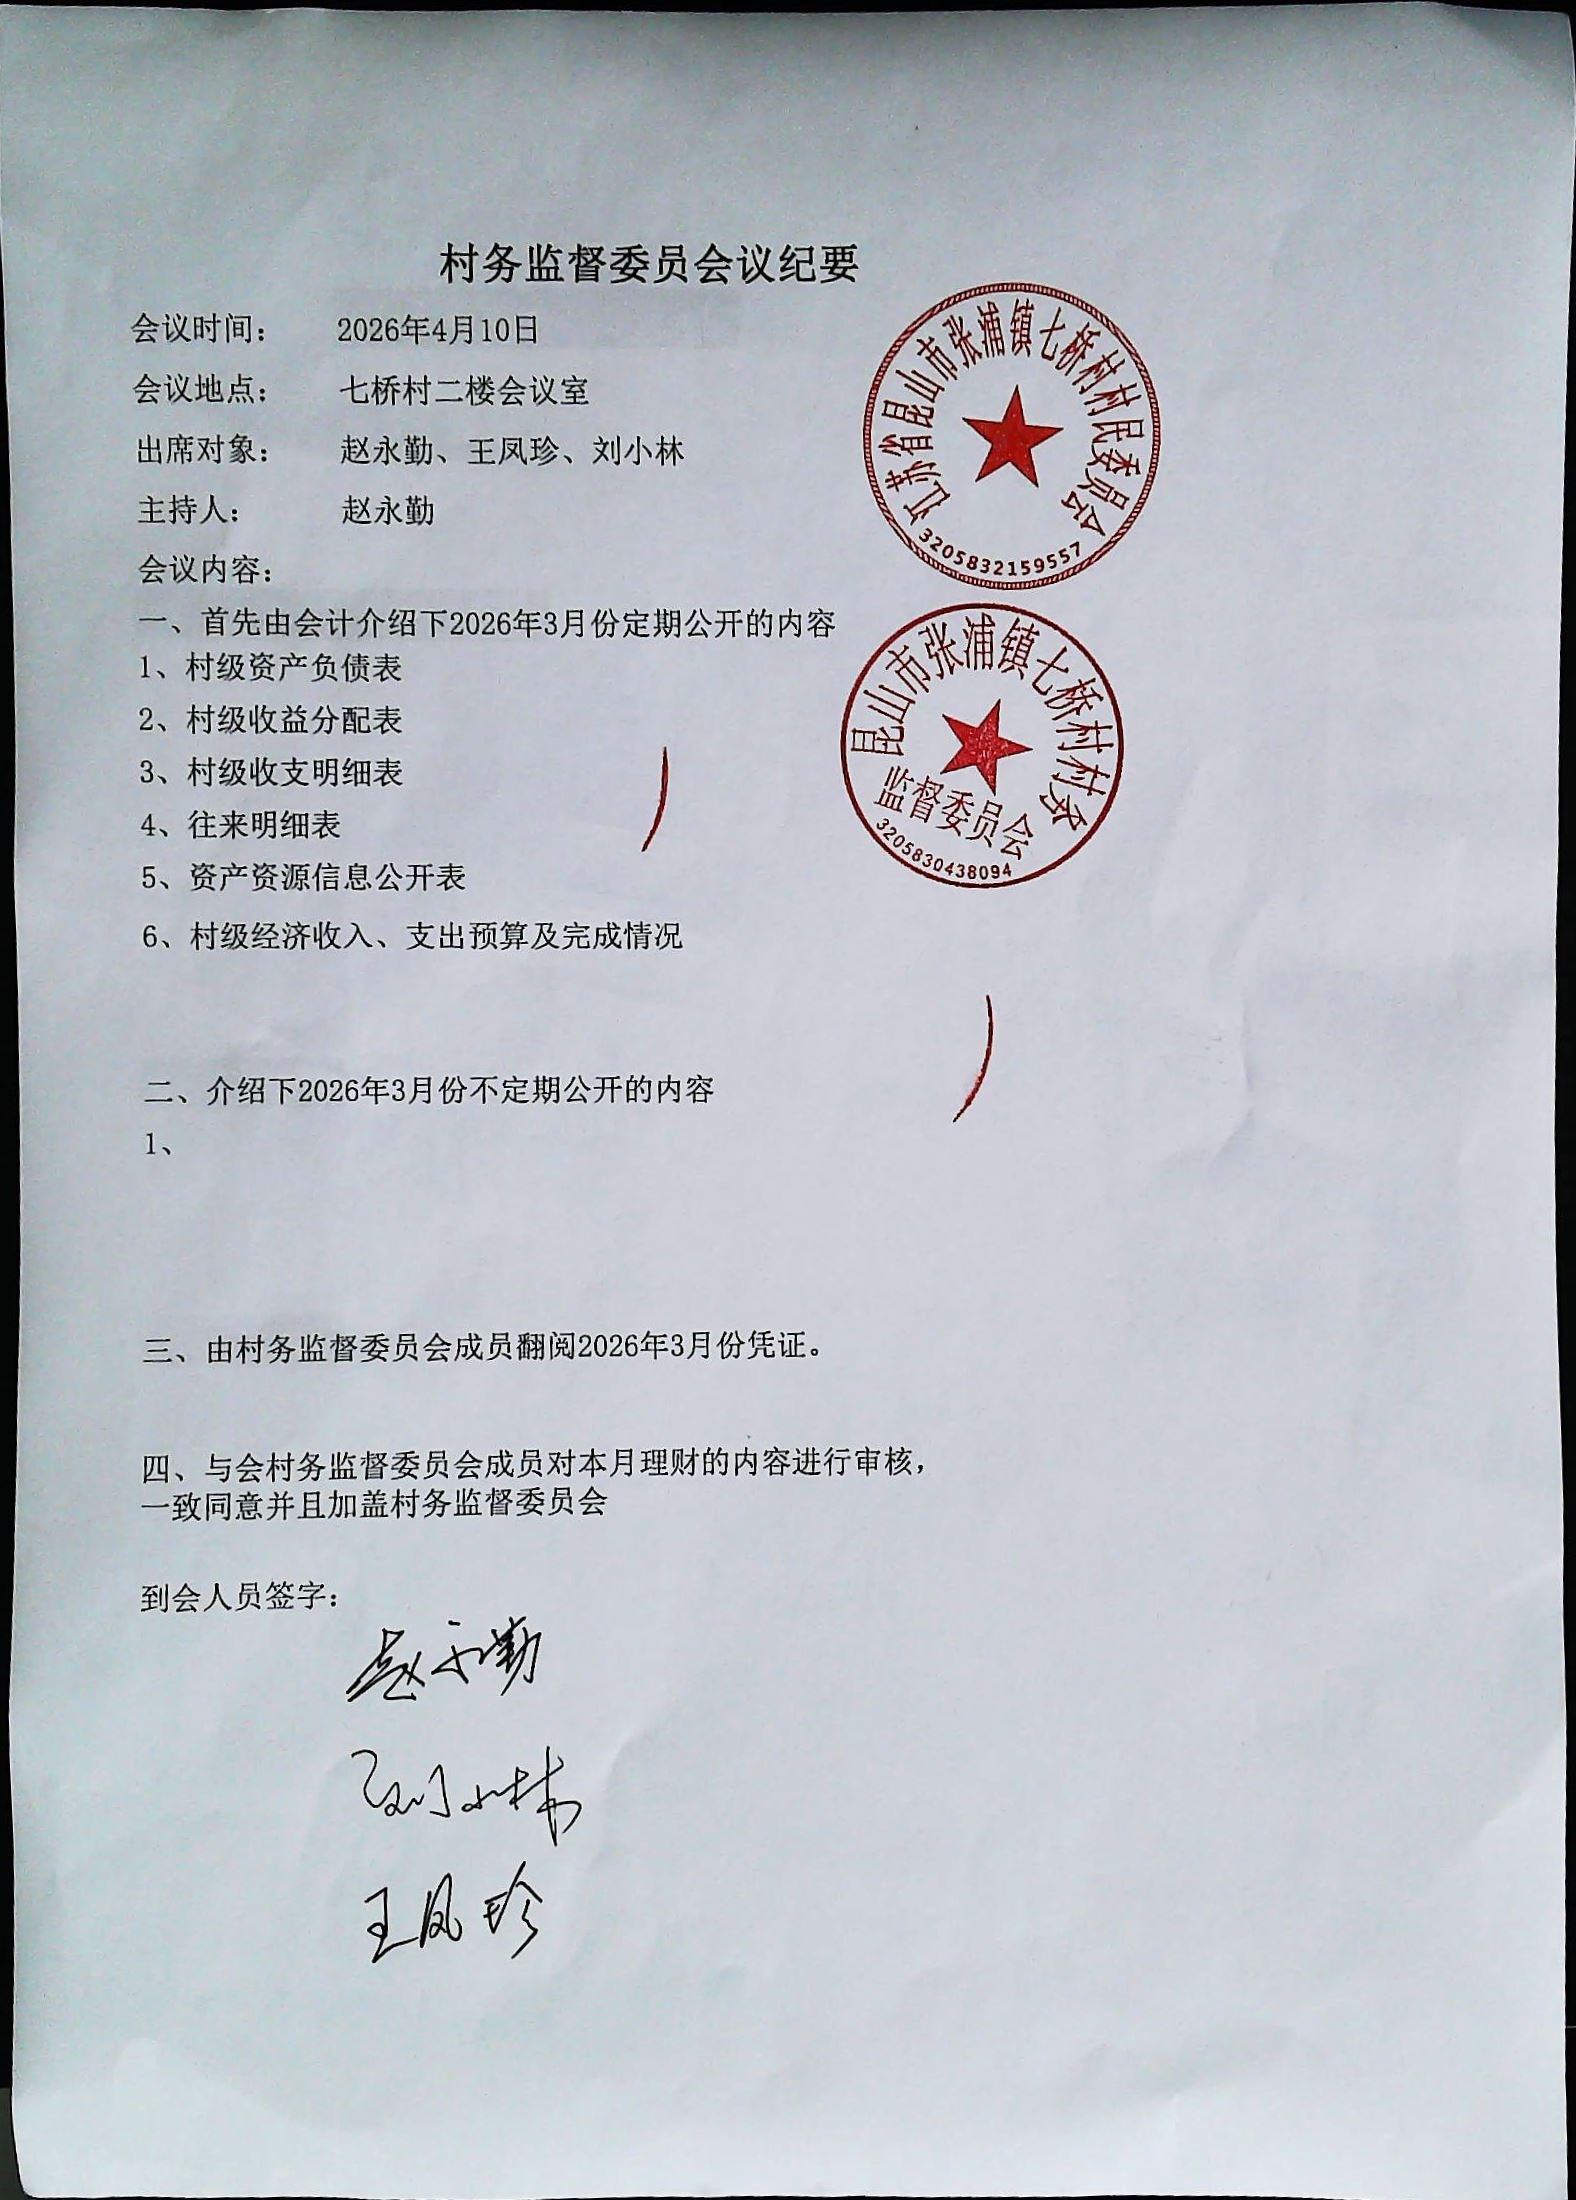 村务监督委员会议纪要
会议时间： 2026年4月10日
会议地点： 七桥村二楼会议室
出席对象： 赵永勤、王凤珍、刘小林
主持人： 赵永勤
会议内容：
江苏省昆山市张浦镇七桥村村民委员会
3205832159557
一、首先由会计介绍下2026年3月份定期公开的内容
1、村级资产负债表
2、村级收益分配表
3、村级收支明细表
4、往来明细表
5、资产资源信息公开表
6、村级经济收入、支出预算及完成情况
昆山市张浦镇七桥村村务
监督委员会
3205830438094
二、介绍下2026年3月份不定期公开的内容
1、
三、由村务监督委员会成员翻阅2026年3月份凭证。
四、与会村务监督委员会成员对本月理财的内容进行审核，
一致同意并且加盖村务监督委员会
到会人员签字：
赵永勤
刘小林
王凤珍